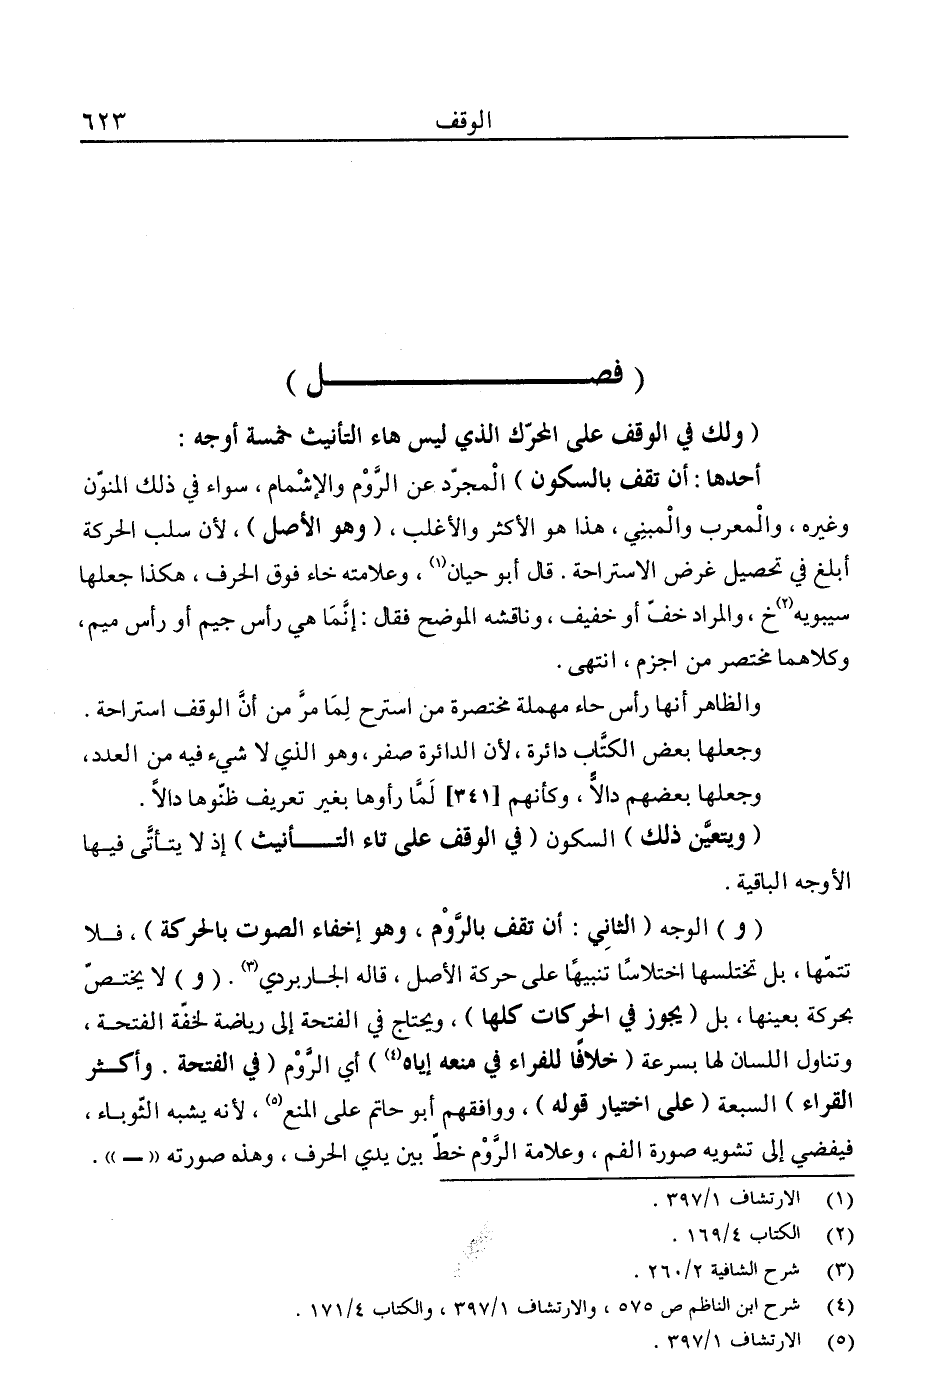 الوقف ٦٢٣
( فصـــــــــــــــــل )
( ولك في الوقف على المحرّك الذي ليس هاء التأنيث خمسة أوجه :
أحدها : أن تقف بالسكون ) الْمجرّد عن الرَّوْم والإشْمام ، سواء في ذلك المنوّن
وغيره ، والْمعرب والْمبني ، هذا هو الأكثر والأغلب ، ( وهو الأصل ) ، لأن سلب الحركة
أبلغ في تحصيل غرض الاستراحة . قال أبو حيان(١) ، وعلامته خاء فوق الحرف ، هكذا جعلها
سيبويه(٢)خ ، والمراد خفّ أو خفيف ، وناقشه الموضح فقال : إنَّمَا هي رأس جيم أو رأس ميم ،
وكلاهما مختصر من اجزم ، انتهى .
والظاهر أنها رأس حاء مهملة مختصرة من استرح لِمَا مرَّ من أنَّ الوقف استراحة .
وجعلها بعض الكتَّاب دائرة ، لأن الدائرة صفر ، وهو الذي لا شيء فيه من العدد،
وجعلها بعضهم دالاً ، وكأنهم [٣٤١] لَمَّا رأوها بغير تعريف ظنّوها دالاً .
( ويتعيَّن ذلك ) السكون ( في الوقف على تاء التـــــأنيث ) إذ لا يتـأتَّى فيـها
الأوجه الباقية .
( و ) الوجه ( الثاني : أن تقف بالرَّوْم ، وهو إخفاء الصوت بالحركة ) ، فـلا
تتمّها ، بل تختلسها اختلاسًا تنبيهًا على حركة الأصل ، قاله الجاربردي(٣) . ( و ) لا يختـصّ
بحركة بعينها ، بل ( يجوز في الحركات كلها ) ، ويحتاج في الفتحة إلى رياضة لخفّة الفتحـة ،
وتناول اللسان لها بسرعة ( خلافًا للفراء في منعه إياه(٤) ) أي الرَّوْم ( في الفتحة . وأكـثر
القراء ) السبعة ( على اختيار قوله ) ، ووافقهم أبو حاتم على المنع(٥) ، لأنه يشبه الثّوباء ،
فيفضي إلى تشويه صورة الفم ، وعلامة الرَّوْم خطّ بين يدي الحرف ، وهذه صورته «ــ» .
(١) الارتشاف ٣٩٧/١ .
(٢) الكتاب ١٦٩/٤ .
(٣) شرح الشافية ٢٦٠/٢ .
(٤) شرح ابن الناظم ص ٥٧٥ ، والارتشاف ٣٩٧/١ ، والكتاب ١٧١/٤ .
(٥) الارتشاف ٣٩٧/١ .